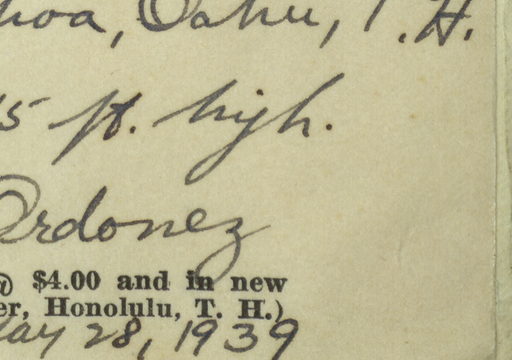 hoa, Oahu, T.H.
5 ft. high.
Ordonez
@ $4.00 and in new
er, Honolulu, T. H.)
May 28, 1939